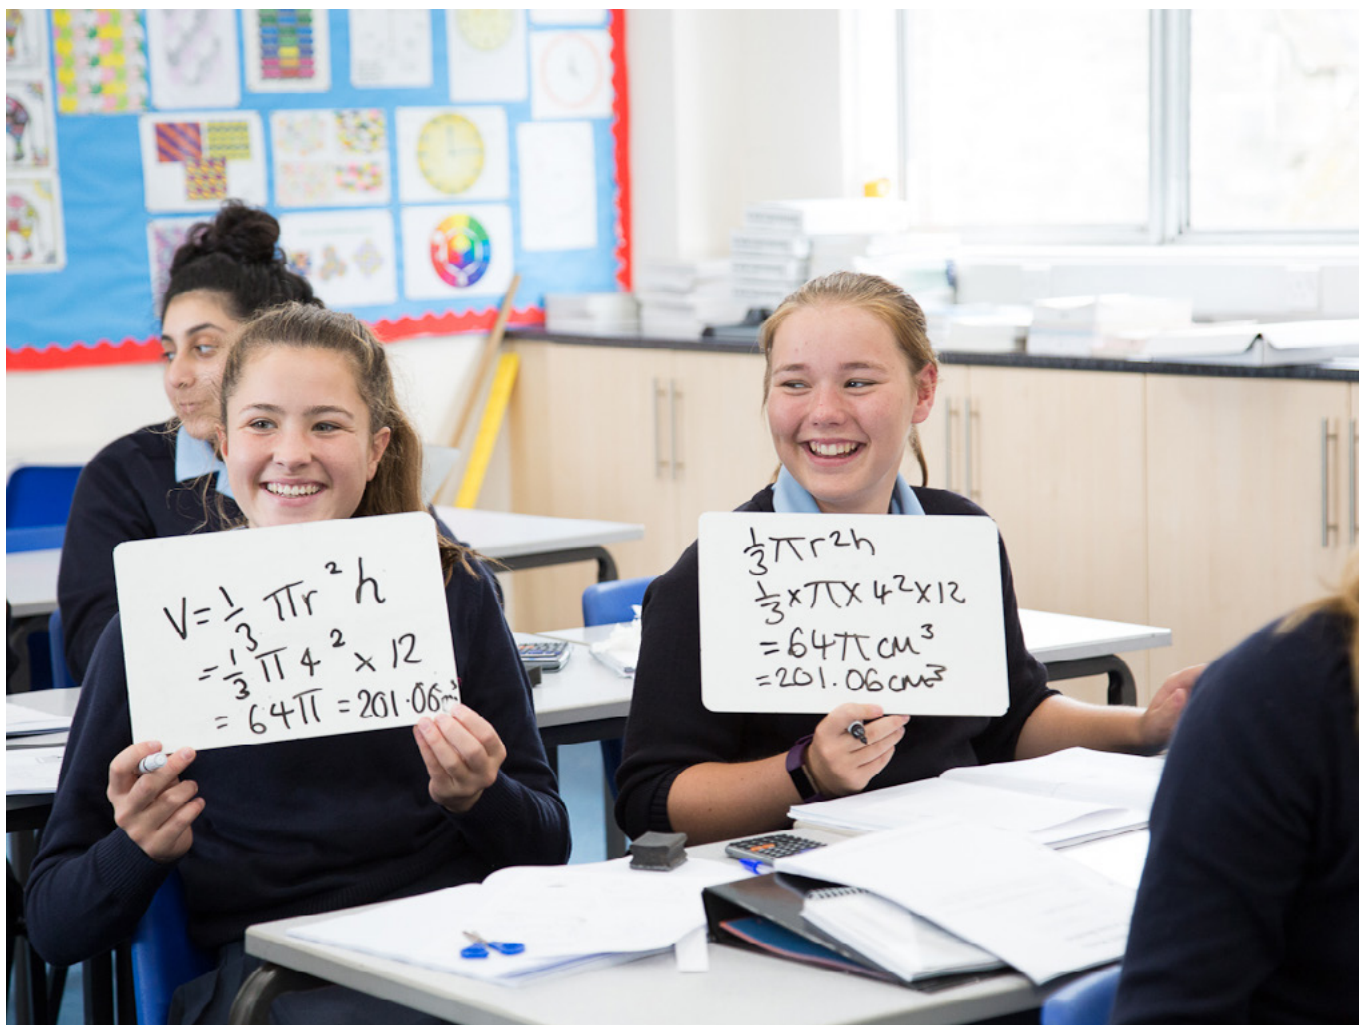 V = 1/3 πr² h
= 1/3 π 4² × 12
= 64π = 201.06cm³
1/3 πr²h
1/3 × π × 4² × 12
= 64π cm³
= 201.06cm³